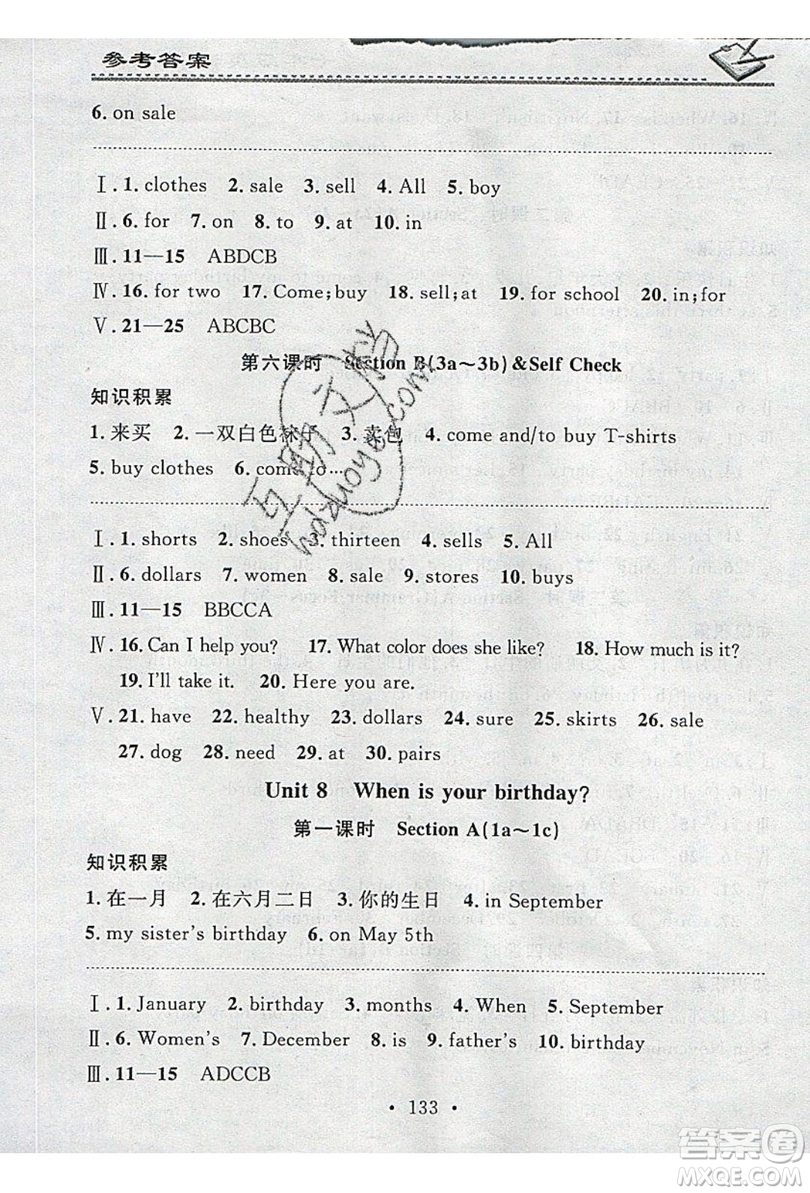 参考答案
6. on sale
Ⅰ. 1. clothes 2. sale 3. sell 4. All 5. boy
Ⅱ. 6. for 7. on 8. to 9. at 10. in
Ⅲ. 11—15 ABDCB
Ⅳ. 16. for two 17. Come;buy 18. sell;at 19. for school 20. in;for
Ⅴ. 21—25 ABCBC
第六课时 Section B(3a~3b)&Self Check
知识积累
1. 来买 2. 一双白色袜子 3. 卖包 4. come and/to buy T-shirts
5. buy clothes 6. come to…
Ⅰ. 1. shorts 2. shoes 3. thirteen 4. sells 5. All
Ⅱ. 6. dollars 7. women 8. sale 9. stores 10. buys
Ⅲ. 11—15 BBCCA
Ⅳ. 16. Can I help you? 17. What color does she like? 18. How much is it?
19. I'll take it. 20. Here you are.
Ⅴ. 21. have 22. healthy 23. dollars 24. sure 25. skirts 26. sale
27. dog 28. need 29. at 30. pairs
Unit 8 When is your birthday?
第一课时 Section A(1a~1c)
知识积累
1. 在一月 2. 在六月二日 3. 你的生日 4. in September
5. my sister's birthday 6. on May 5th
Ⅰ. 1. January 2. birthday 3. months 4. When 5. September
Ⅱ. 6. Women's 7. December 8. is 9. father's 10. birthday
Ⅲ. 11—15 ADCCB
· 133 ·
互助文档
hdzuoye.com
答案圈
MXQE.COM